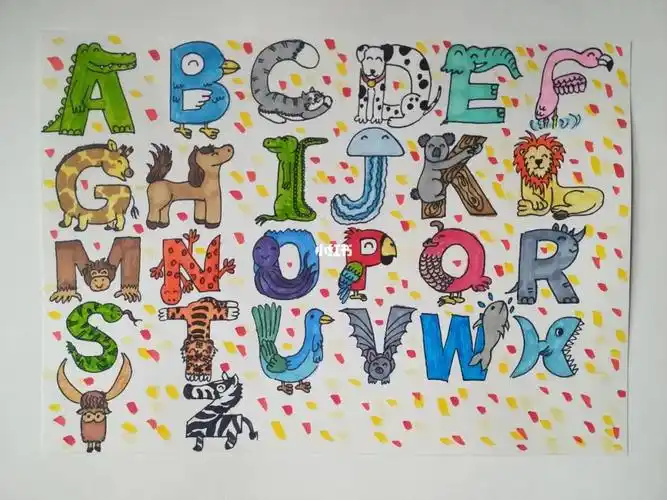 A B C D E F
G H I J K L
M N O P Q R
小红书
S T U V W X
Y Z